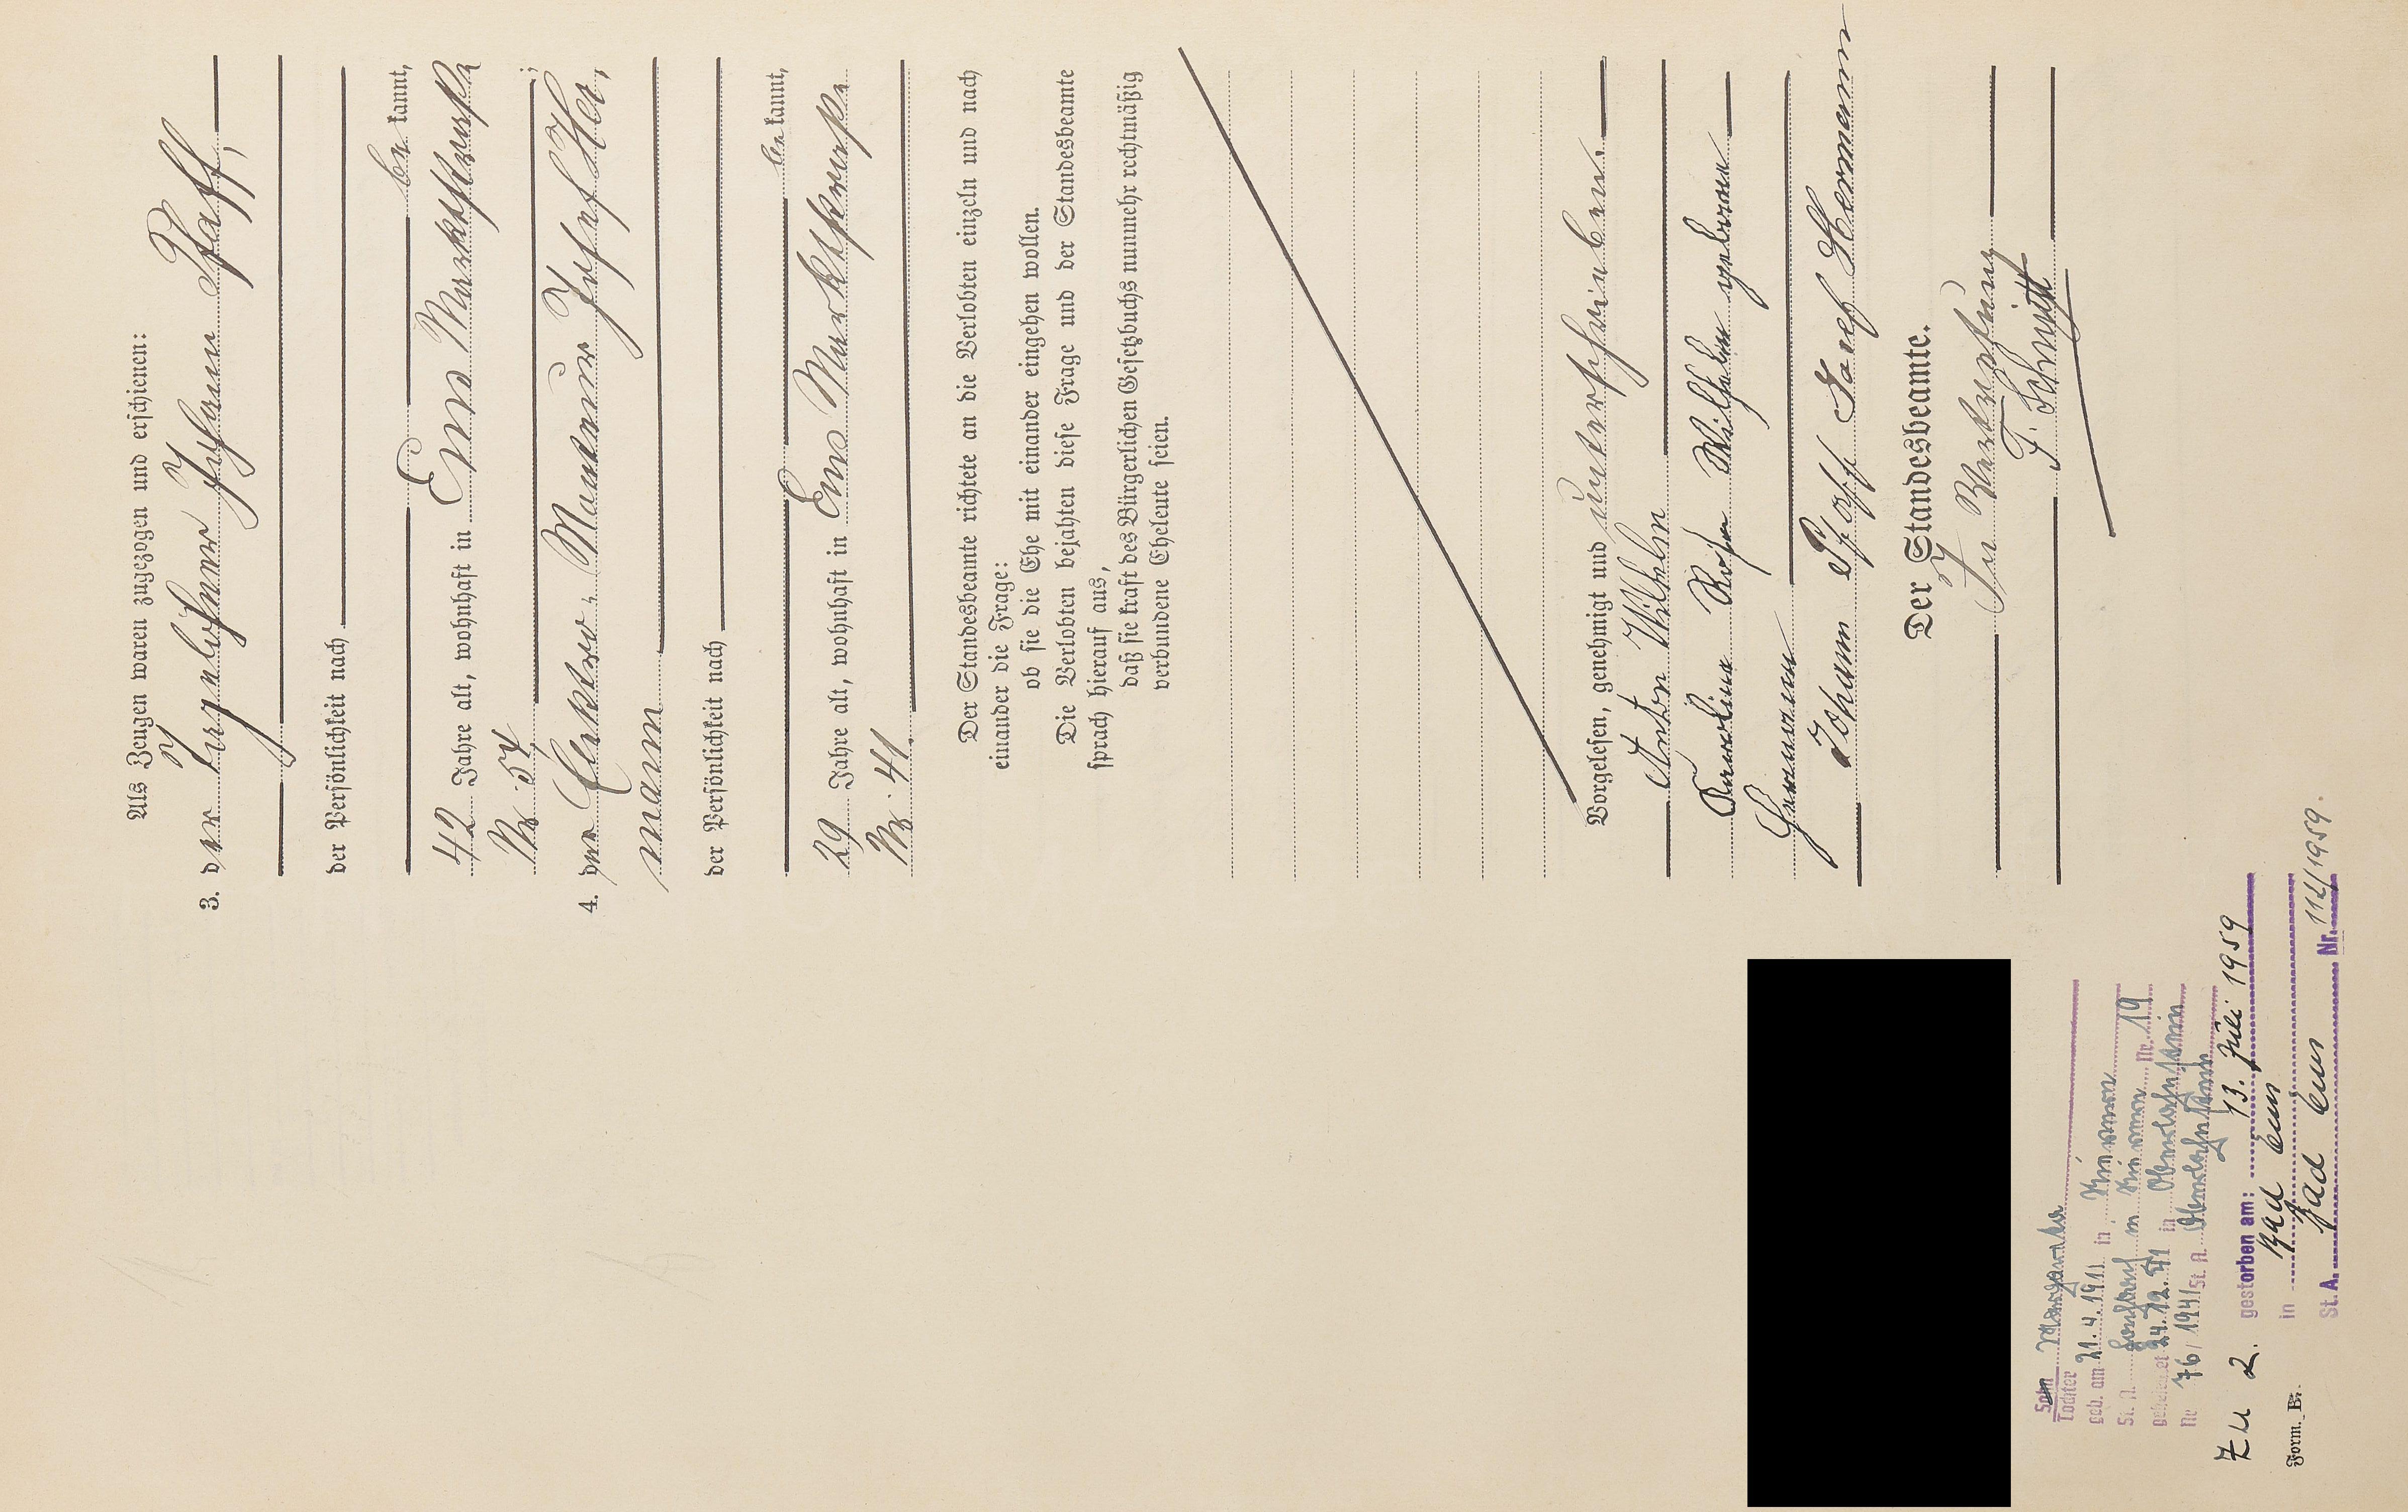 Als Zeugen waren zugezogen und erschienen:
3. der Tagelöhner Johann Pfaff,
der Persönlichkeit nach
be kannt,
42 Jahre alt, wohnhaft in Ems Marktstraße
Nr. 54;
4. der Elektro-Monteur Josef Her-
mann
der Persönlichkeit nach
be kannt,
29 Jahre alt, wohnhaft in Ems Marktstraße
Nr. 41.
Der Standesbeamte richtete an die Verlobten einzeln und nach
einander die Frage:
ob sie die Ehe mit einander eingehen wollen.
Die Verlobten bejahten diese Frage und der Standesbeamte
sprach hierauf aus,
daß sie kraft des Bürgerlichen Gesetzbuchs nunmehr rechtmäßig
verbundene Eheleute seien.
Vorgelesen, genehmigt und unterschrieben.
Anton Wilhelm
Karoline Rosa Wilhelm geborene
Hermann
Johann Pfaff Josef Hermann
Der Standesbeamte.
In Vertretung
F. Schmitt
Sohn Margareta
Tochter
geb. am 21.4.1911 in
St. A. Nr. 19
geheiratet 24.12.41 in Oberlahnstein
Nr. 76/1941 St. A. Oberlahnstein
Zu 2. gestorben am: 13. Juli 1959
in Bad Ems
St. A. Bad Ems Nr. 114/1959.
Form. B.